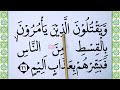 وَيَقْتُلُونَ الَّذِينَ يَأْمُرُونَ
بِالْقِسْطِ مِنَ النَّاسِ
فَبَشِّرْهُمْ بِعَذَابٍ أَلِيمٍ ﴿٢١﴾